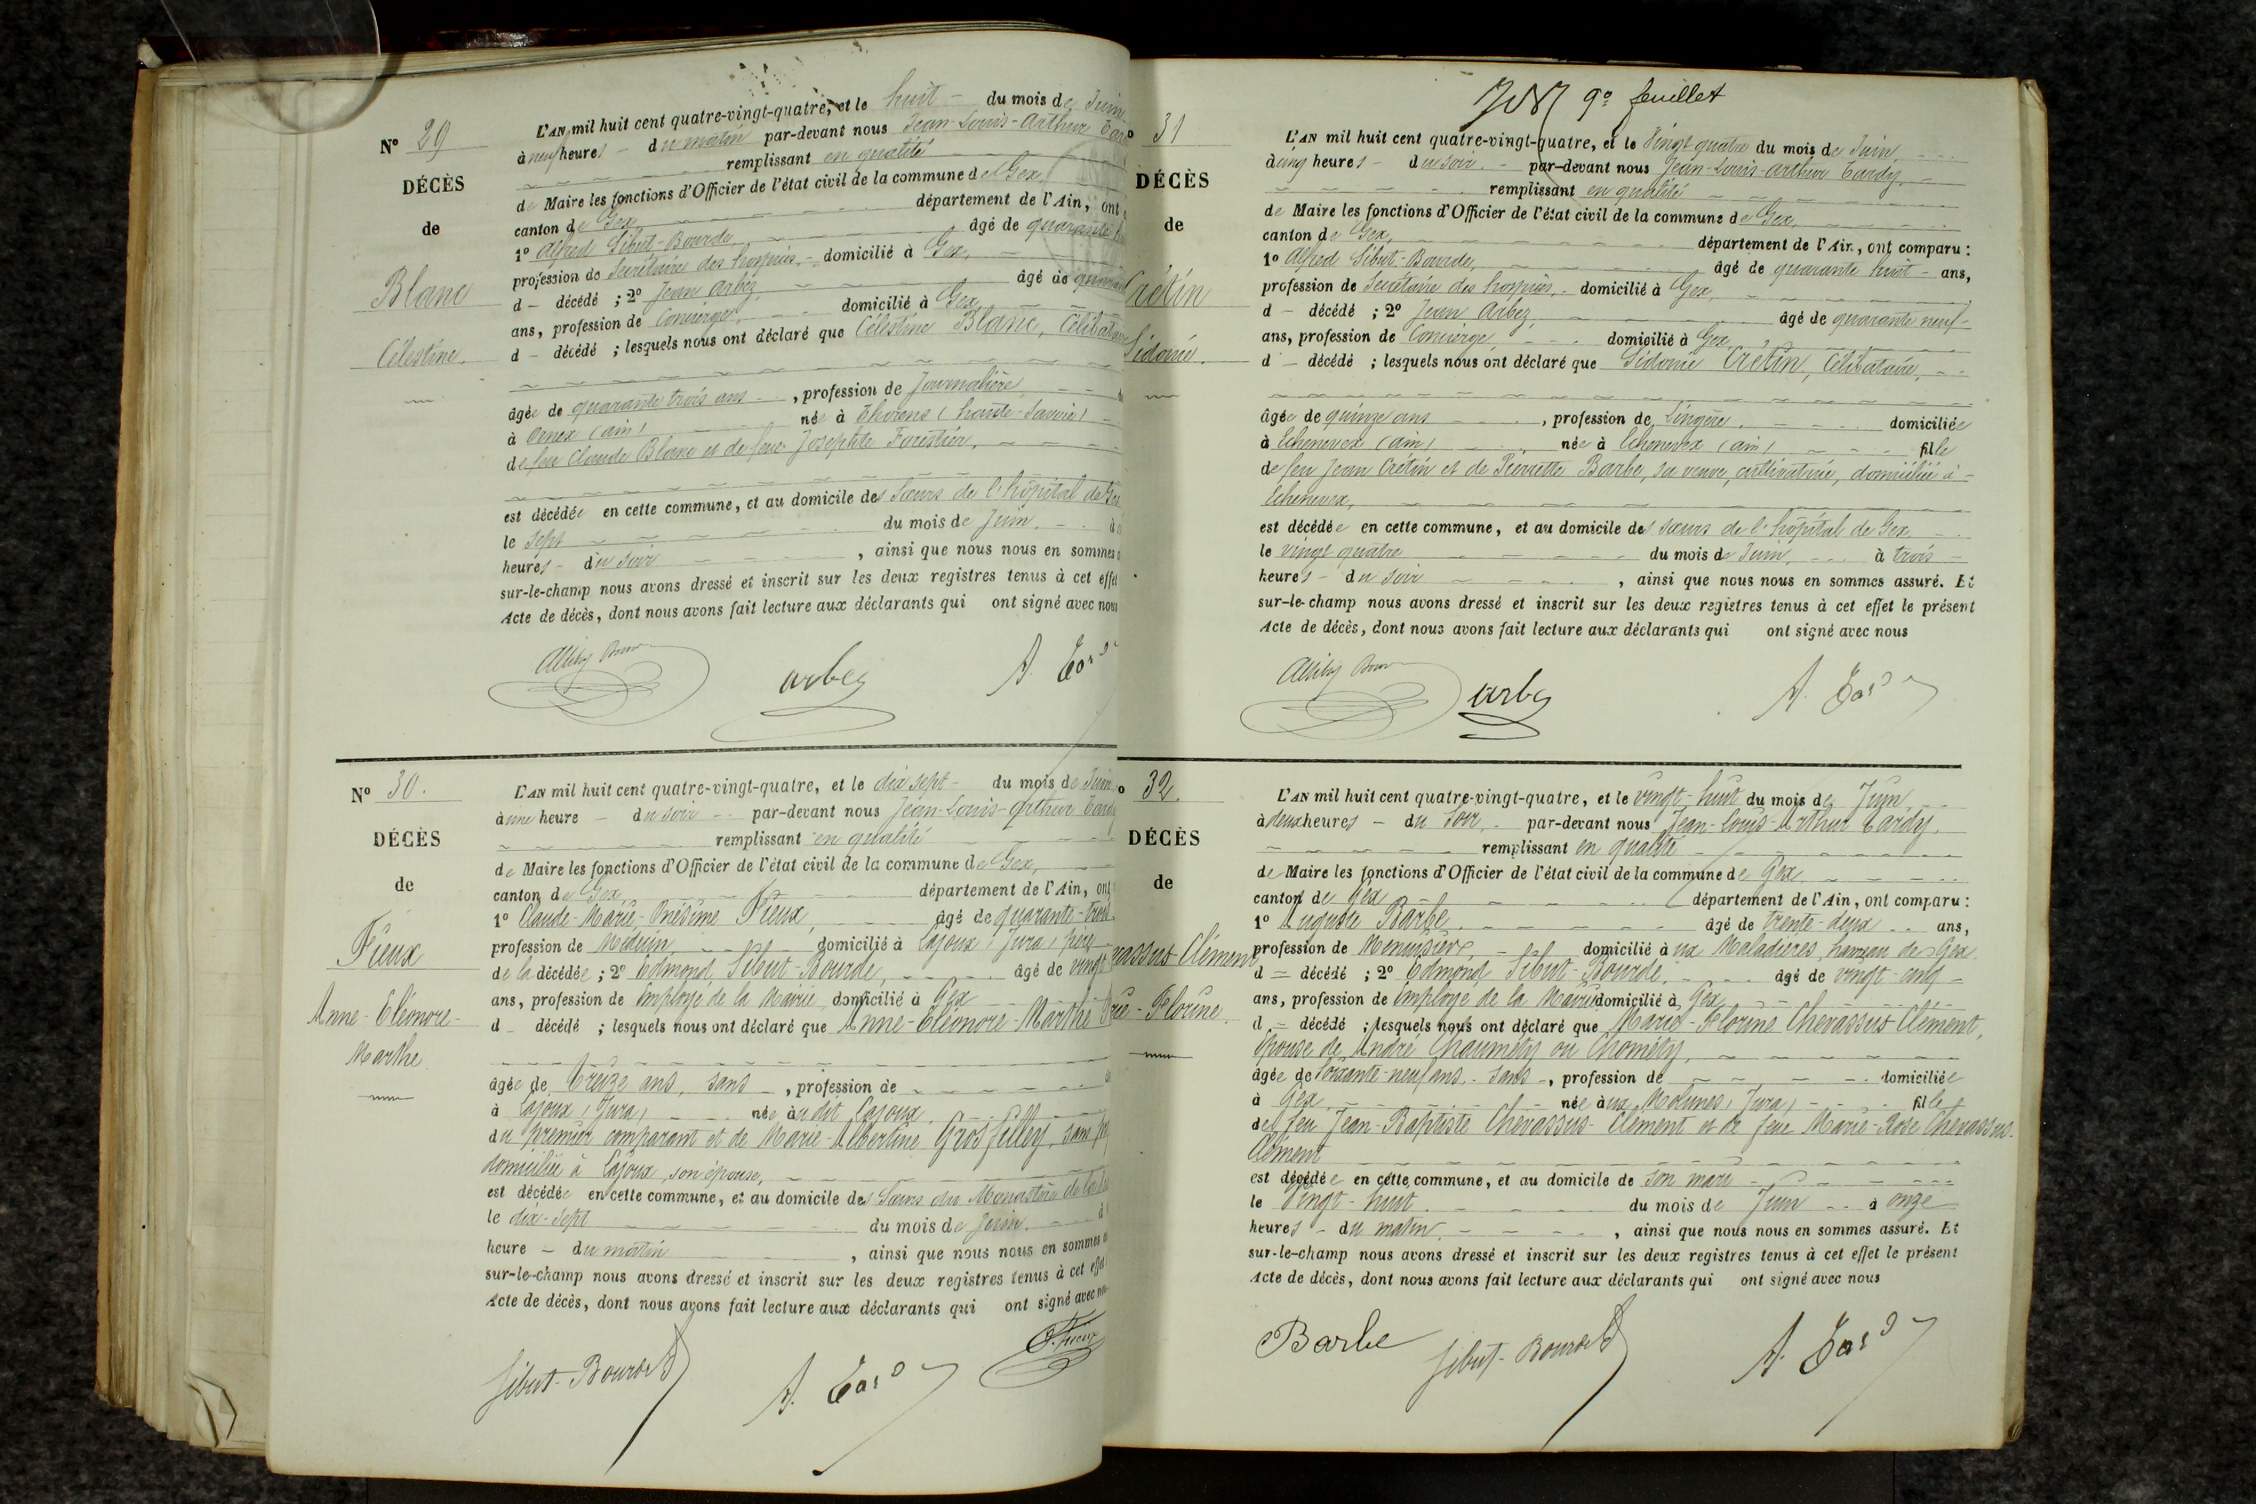 Nº 29
DÉCÈS
de
Blanc
Célestine.
L'AN mil huit cent quatre-vingt-quatre, et le huit du mois de Juin
à neuf heures du matin par-devant nous Jean-Louis-Arthur
remplissant en qualité
de Maire les fonctions d'Officier de l'état civil de la commune de Gex,
canton de Gex département de l'Ain, ont
1º Alfred Sibut-Bourde, âgé de quarante
profession de Secrétaire des hospices, domicilié à Gex,
d décédé ; 2º Jean Arbez, âgé de
ans, profession de Concierge, domicilié à Gex,
d décédé ; lesquels nous ont déclaré que Célestine Blanc, Célibataire
âgée de quarante trois ans , profession de Journalière,
à Ornex (ain) née à Thorens (haute-Savoie)
de feu Claude Blanc et de feue Josephte Forestier,
est décédée en cette commune, et au domicile des Sœurs de l'hôpital de Gex
le sept du mois de Juin,
heures du soir , ainsi que nous nous en sommes
sur-le-champ nous avons dressé et inscrit sur les deux registres tenus à cet effet
Acte de décès, dont nous avons fait lecture aux déclarants qui ont signé avec nous
arbez
Nº 30.
DÉCÈS
de
Fieux
Anne-Eléonore-
Marthe
L'AN mil huit cent quatre-vingt-quatre, et le dix sept du mois de Juin,
à une heure du soir par-devant nous Jean-Louis-Arthur Tardy
remplissant en qualité
de Maire les fonctions d'Officier de l'état civil de la commune de Gex,
canton de Gex département de l'Ain, ont
1º Claude-Marie-Onésime Fieux, âgé de quarante-trois
profession de Médecin domicilié à Lajoux (Jura) père
de la décédée ; 2º Edmond Sibut-Bourde, âgé de vingt
ans, profession de Employé de la Mairie domicilié à Gex
d décédé ; lesquels nous ont déclaré que Anne-Eléonore-Marthe
âgée de treize ans, sans , profession de
à Lajoux (Jura) née au dit Lajoux
du premier comparant et de Marie-Albertine Grosfilley, sans
domiciliée à Lajoux, son épouse,
est décédée en cette commune, et au domicile des Sœurs du Monastère de
le dix-sept du mois de Juin,
heure du matin , ainsi que nous nous en sommes
sur-le-champ nous avons dressé et inscrit sur les deux registres tenus à cet effet
Acte de décès, dont nous avons fait lecture aux déclarants qui ont signé avec
Sibut-Bourde A. Tardy Fieux
9º feuillet
31
DÉCÈS
de
Crétin
Sidonie.
L'AN mil huit cent quatre-vingt-quatre, et le Vingt quatre du mois de Juin,
à cinq heures du soir par-devant nous Jean-Louis-Arthur Tardy,
remplissant en qualité
de Maire les fonctions d'Officier de l'état civil de la commune de Gex,
canton de Gex, département de l'Ain, ont comparu :
1º Alfred Sibut-Bourde, âgé de quarante huit ans,
profession de Secrétaire des hospices, domicilié à Gex,
d décédé ; 2º Jean Arbez, âgé de quarante neuf
ans, profession de Concierge, domicilié à Gex,
d décédé ; lesquels nous ont déclaré que Sidonie Crétin, Célibataire,
âgée de quinze ans , profession de Lingère, domiciliée
à Echenevex (ain) née à Echenevex (ain) fille
de feu Jean Crétin et de Pernette Barbe, sa veuve, cultivatrice, domiciliée à
Echenevex,
est décédée en cette commune, et au domicile des sœurs de l'hôpital de Gex
le vingt quatre du mois de Juin, à trois
heures du soir , ainsi que nous nous en sommes assuré. Et
sur-le-champ nous avons dressé et inscrit sur les deux registres tenus à cet effet le présent
Acte de décès, dont nous avons fait lecture aux déclarants qui ont signé avec nous
arbez A. Tardy
32.
DÉCÈS
de
vassus Clément
rie-Florine
L'AN mil huit cent quatre-vingt-quatre, et le vingt-huit du mois de Juin
à deux heures du soir par-devant nous Jean-Louis-Arthur Tardy,
remplissant en qualité
de Maire les fonctions d'Officier de l'état civil de la commune de Gex
canton de Gex département de l'Ain, ont comparu :
1º Auguste Barbe âgé de trente-deux ans,
profession de Menuisier, domicilié aux Maladières, hameau de Gex
d décédé ; 2º Edmond Sibut-Bourde, âgé de vingt-cinq
ans, profession de Employé de la Mairie domicilié à Gex
d décédé ; lesquels nous ont déclaré que Marie-Florine Chevassus Clément,
épouse de André Chauméty ou Chométy,
âgée de soixante-neuf ans, sans , profession de domiciliée
à Gex née aux Molunes (Jura) fille
de feu Jean-Baptiste Chevassus-Clément et de feue Marie-Rose Chevassus-
Clément
est décédée en cette commune, et au domicile de son mari
le Vingt-huit du mois de Juin à onze
heures du matin, , ainsi que nous nous en sommes assuré. Et
sur-le-champ nous avons dressé et inscrit sur les deux registres tenus à cet effet le présent
Acte de décès, dont nous avons fait lecture aux déclarants qui ont signé avec nous
Barbe Sibut-Bourde A. Tardy